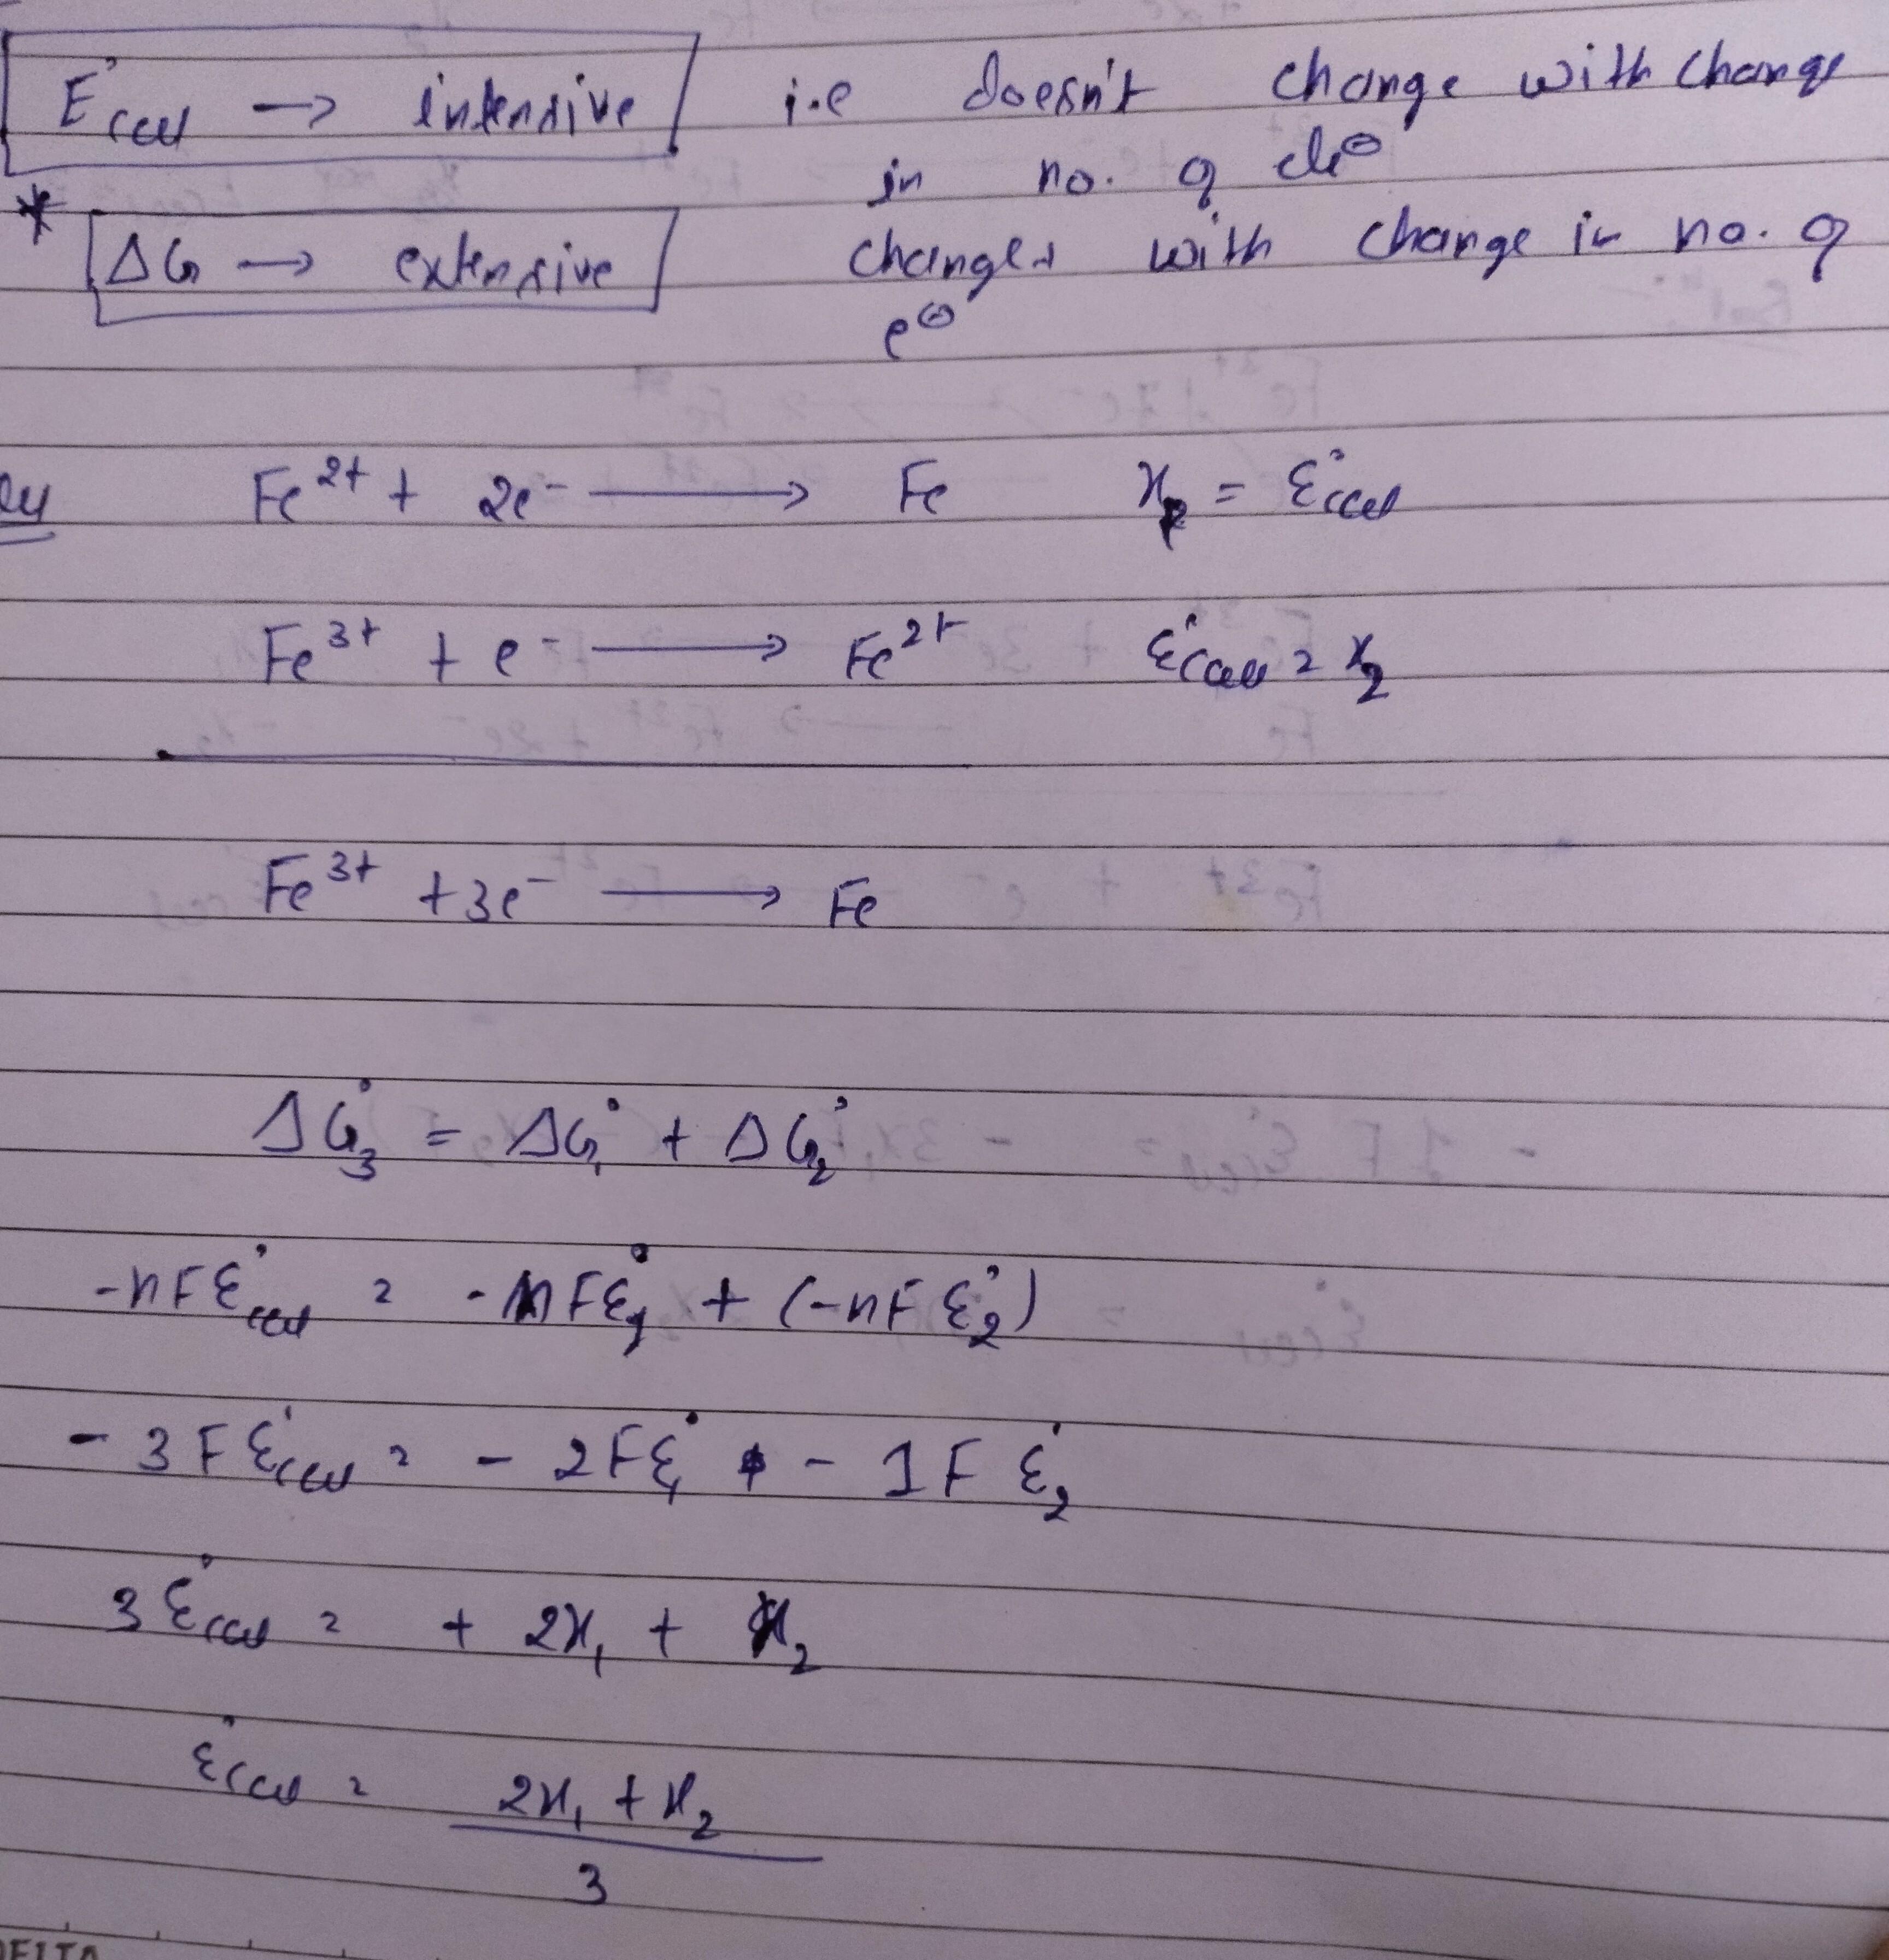 E°cell → intensive i.e doesn't change with change
in no. of ele⊖
* ΔG → extensive changes with change in no. of
e⊖
Fe²⁺ + 2e⁻ → Fe x₁ = E°cell
Fe³⁺ + e⁻ → Fe²⁺ E°cell = x₂
Fe³⁺ + 3e⁻ → Fe
ΔG°₃ = ΔG°₁ + ΔG°₂
-nFE°cell = -nFE°₁ + (-nFE°₂)
- 3FE°cell = - 2FE°₁ - 1FE°₂
3E°cell = + 2x₁ + x₂
E°cell = 2x₁ + x₂
3
DELTA